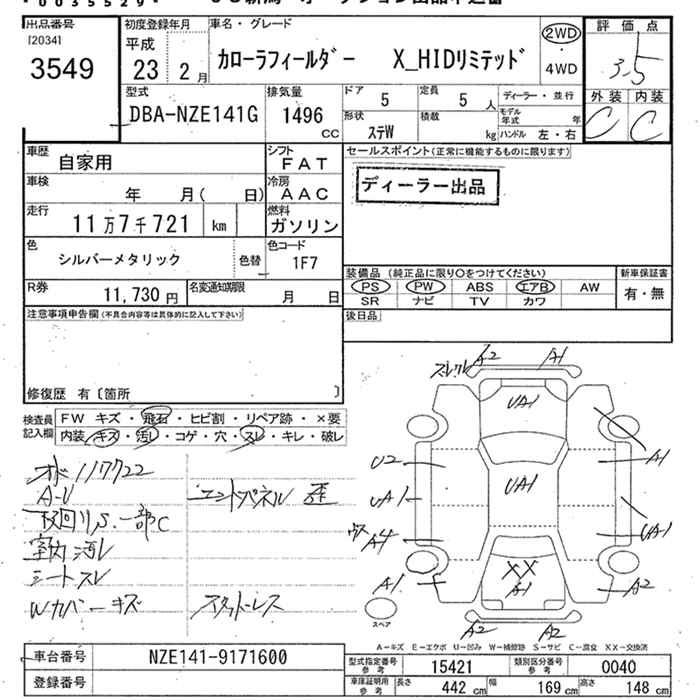 出品番号 初度登録年月 車名・グレード 評価点
[2034] 平成
3549 23年 2月 カローラフィールダー X_HIDリミテッド 2WD・4WD 3.5
型式 排気量 ドア 定員 ディーラー・並行 外装 内装
DBA-NZE141G 1496 cc 5 5人 C C
形状 積載 モデル年式 年
ステW kg ハンドル 左・右
車歴 自家用 シフト FAT セールスポイント(正常に機能するものに限ります)
車検 年 月( 日) 冷房 AAC ディーラー出品
走行 11万7千721 km 燃料 ガソリン
色 シルバーメタリック 色替 色コード 1F7
装備品 (純正品に限り○をつけてください) 新車保証書
R券 11,730円 名変通知期限 月 日 PS PW ABS エアB AW 有・無
SR ナビ TV カワ
注意事項申告欄(不具合内容等は具体的に記入して下さい) 後日品
修復歴 有〔箇所 〕
検査員記入欄 FW キズ・飛石・ヒビ割・リペア跡・×要
内装・キズ・汚レ・コゲ・穴・スレ・キレ・破レ
スレクル A2 A1
UA1
オド117722 U2 A1
A-U エンドパネル歪 UA1 UA1 UA1
下回りS.一部C A4
室内汚レ XX
シートスレ A1 A1 A2
Wカバーキズ スタットレス スペア
A2 A2
A-キズ E-エクボ U-凹み W-補修跡 S-サビ C-腐食 XX-交換済
車台番号 NZE141-9171600 型式指定番号 参考 15421 類別区分番号 参考 0040
登録番号 車庫証明用 参考 長さ 442 cm 幅 169 cm 高さ 148 cm